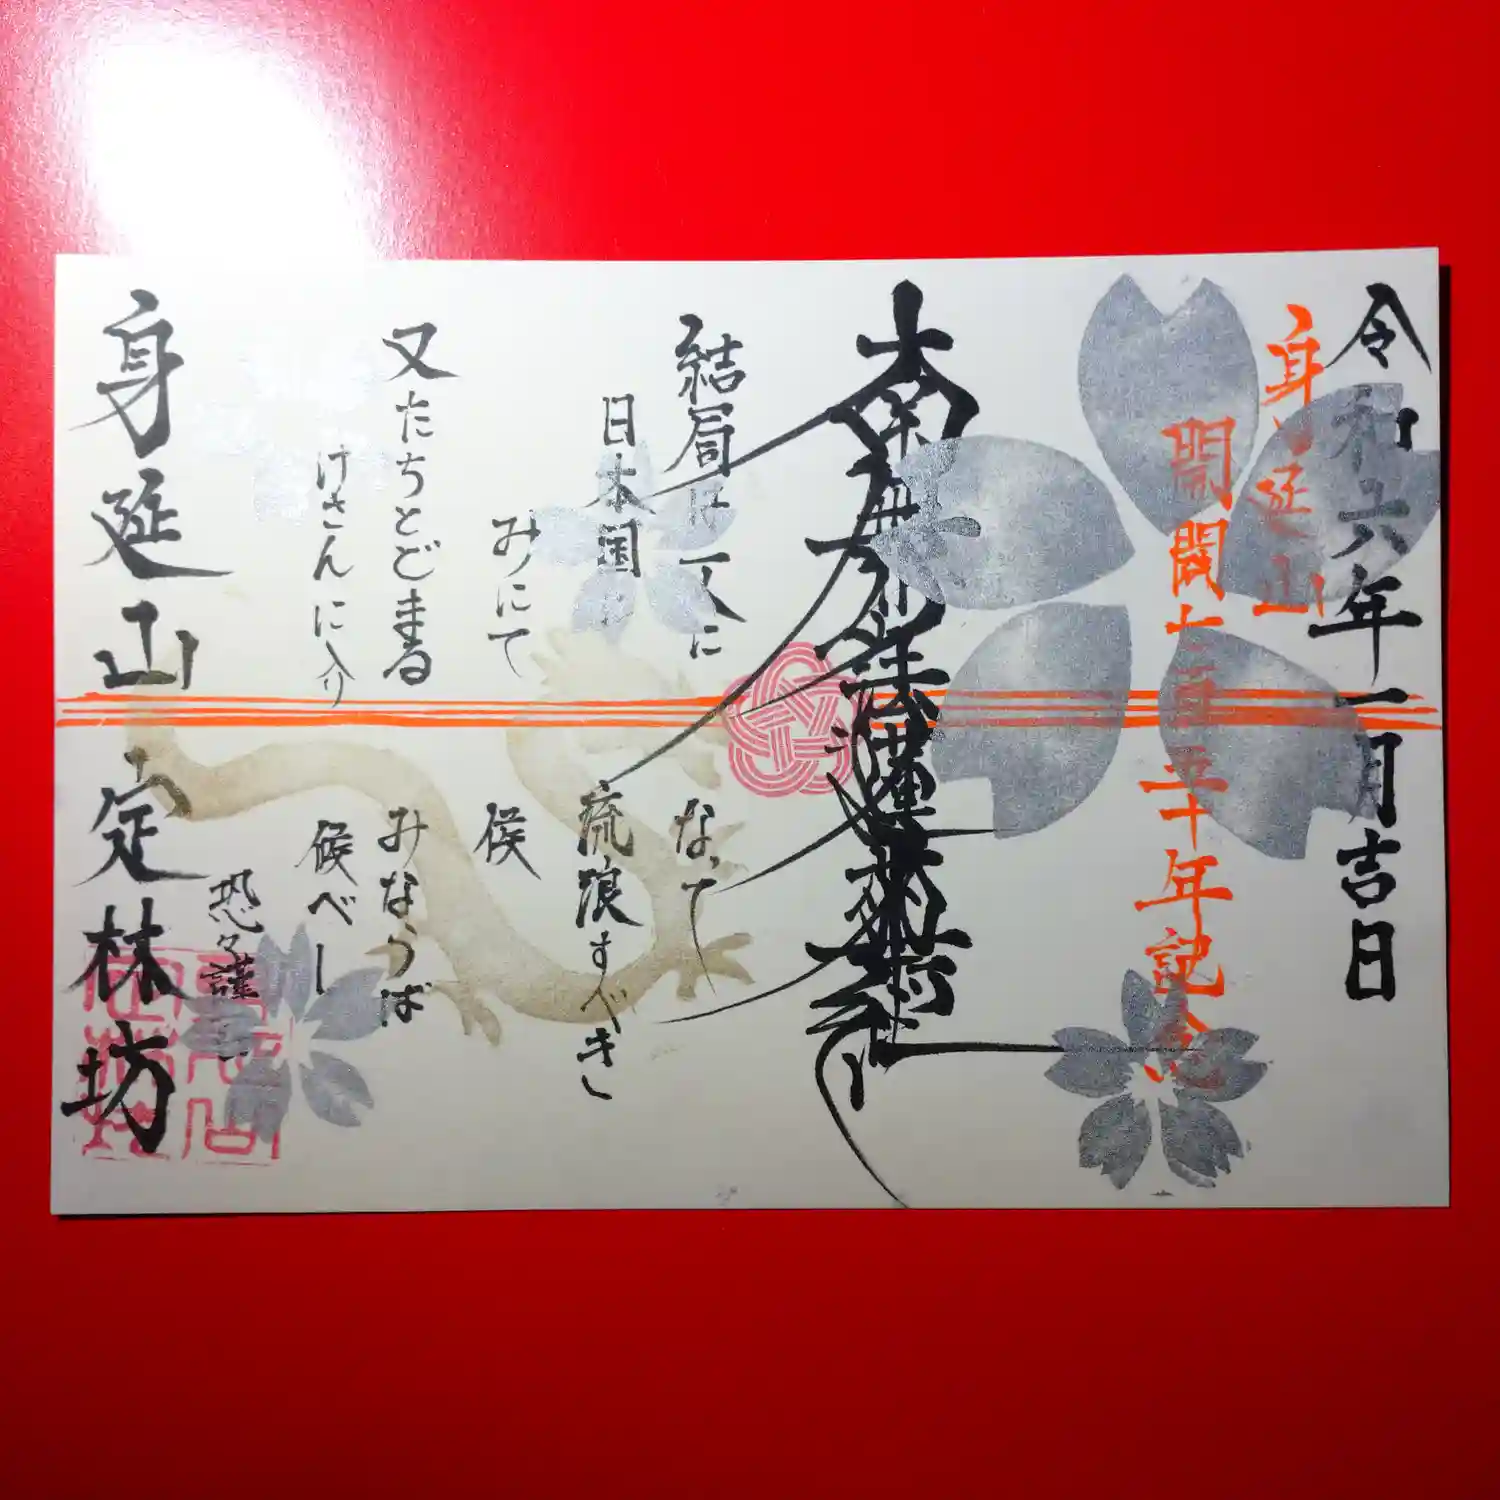 令和六年一月吉日
身延山
開闢七百五十年記念
南無妙法蓮華経
結局は一人に
なって
日本国
流浪すべき
みにて
候
又たちとどまる
みならば
けさんに入り
候べし
恐々謹言
身延山 定林坊